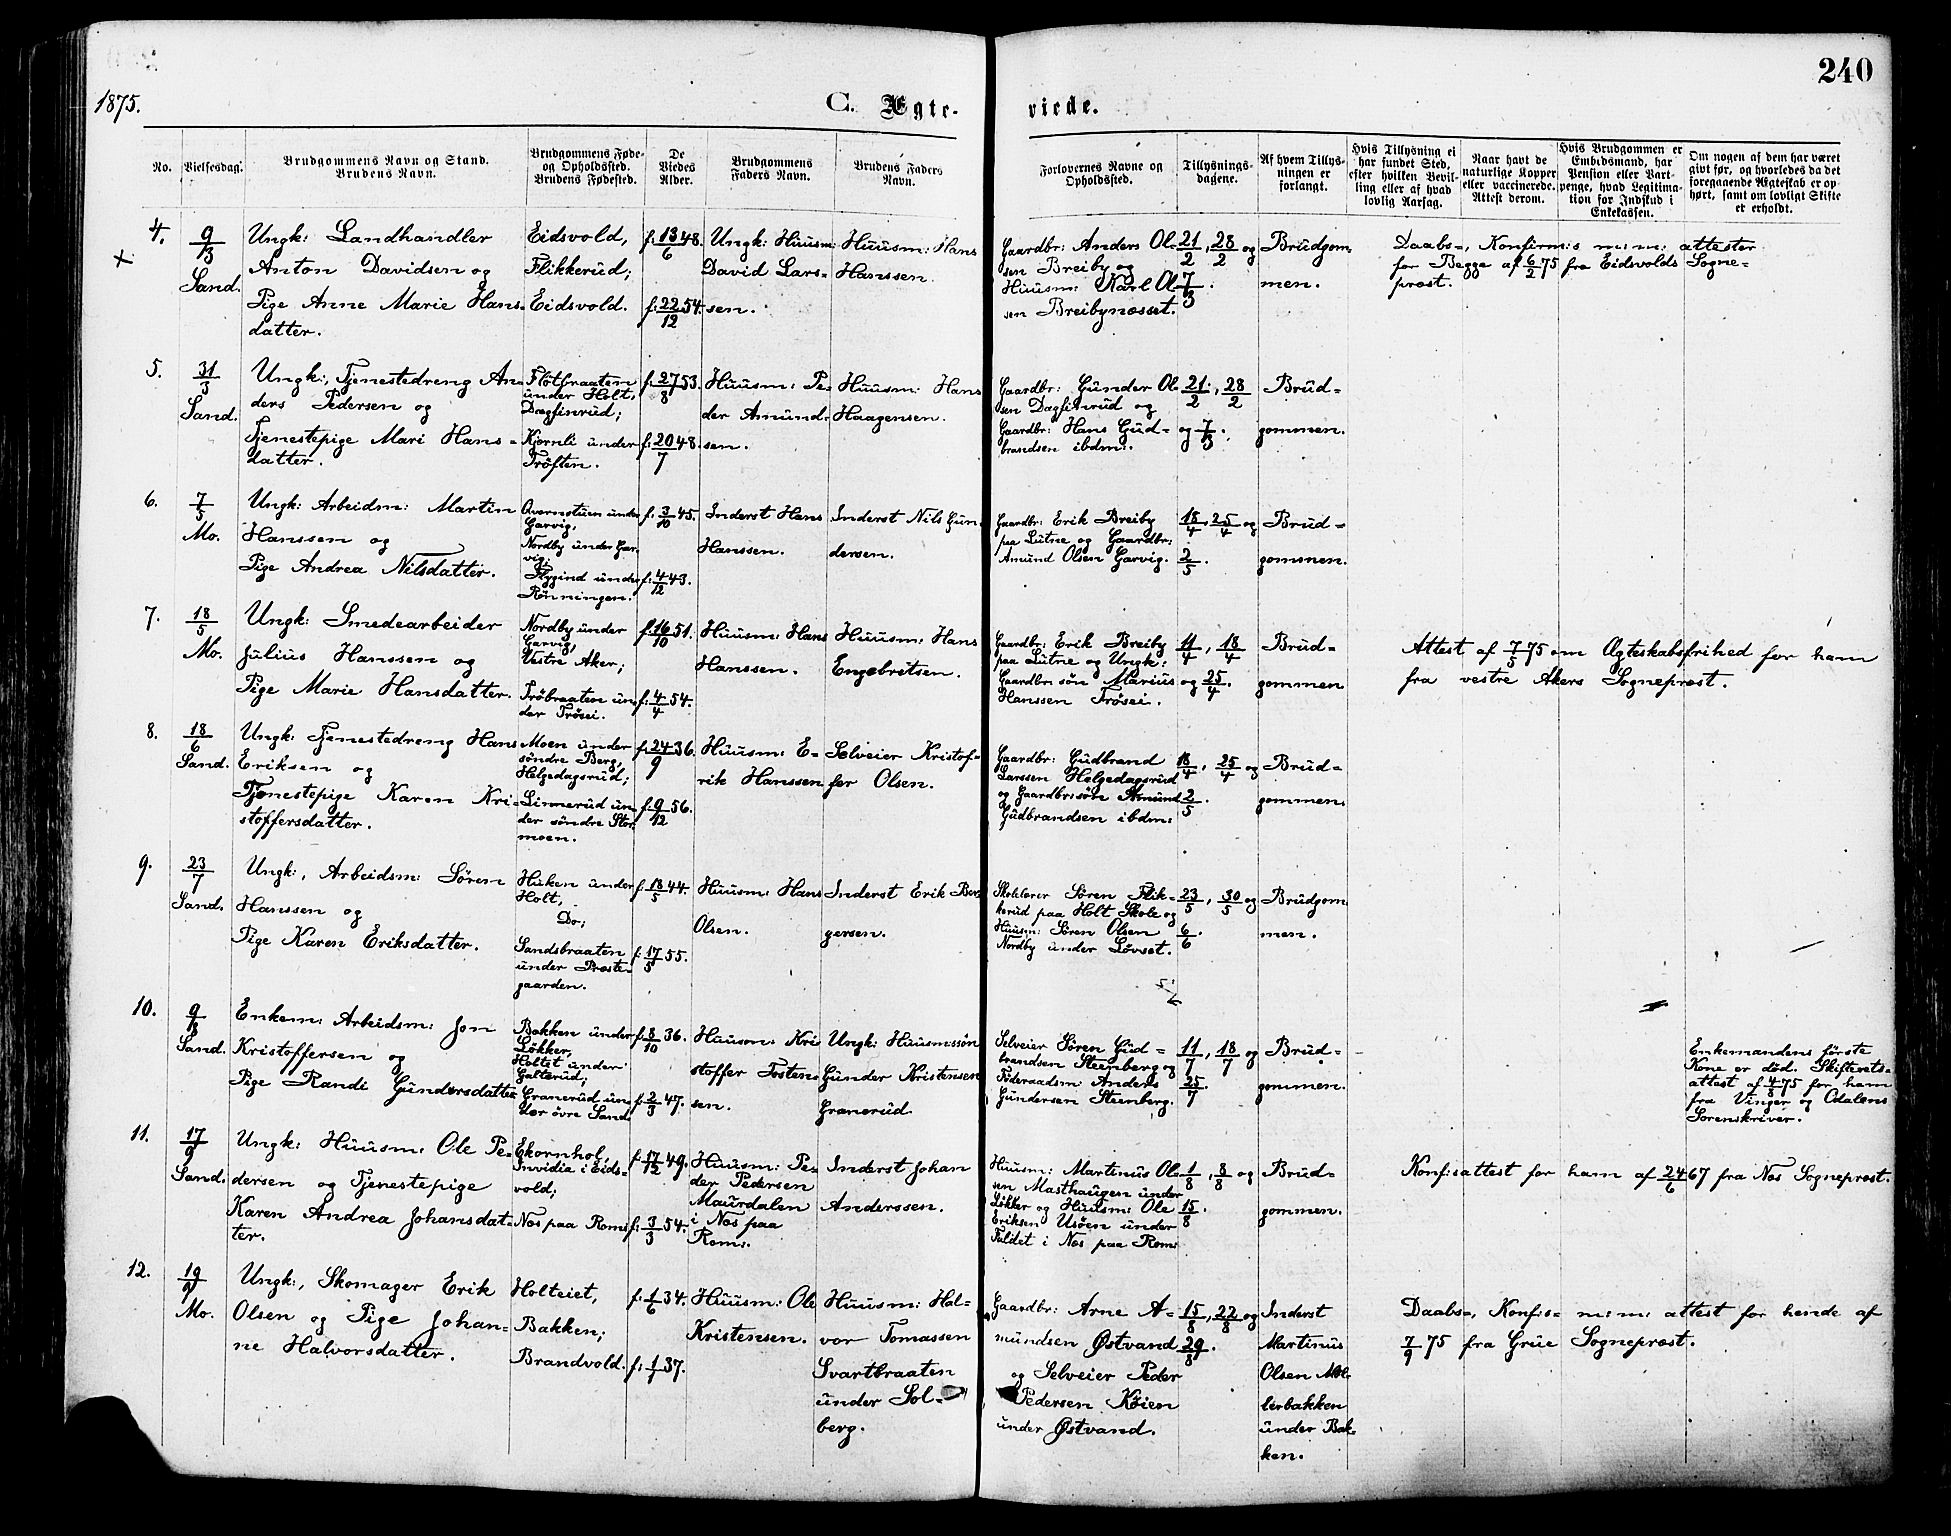 240
1875.
C. Ægte-
viede.
No.
Vielsesdag.
Brudgommens Navn og Stand.
Brudens Navn.
Brudgommens Føde-
og Opholdssted.
Brudens Fødested.
De
Viedes
Alder.
Brudgommens
Faders Navn.
Brudens Faders
Navn.
Forlovernes Navne og
Opholdssted.
Tillysnings-
dagene.
Af hvem Tillys-
ningen er
forlangt.
Hvis Tillysning ei
har fundet Sted,
efter hvilken Bevil-
ling eller af hvad
lovlig Aarsag.
Naar havt de
naturlige Kopper
eller vaccinerede.
Attest derom.
Hvis Brudgommen er
Embedsmand, har
Pension eller Vart-
penge, hvad Legitima-
tion for Indskud i
Enkekassen.
Om nogen af dem har været
givt før, og hvorledes da det
foregaaende Ægteskab er op-
hørt, samt om lovligt Skifte
er erholdt.
4.
9/3
Sand.
Ungk: Landhandler
Anton Davidsen og
Pige Anne Marie Hans-
datter.
Eidsvold,
Flikkerud;
Eidsvold.
f. 13/6 48.
f. 22/12 54.
Ungk: Huusm:
David Lars-
sen.
Huusm: Hans
Hanssen.
Gaardbr: Anders Ol-
sen Breiby og
Huusm: Karl Ol-
sen Breibynæsset.
21/2, 28/2 og
7/3.
Brudgom-
men.
Daabs-, Konfirm:s m: m: attester
for Begge af 6/2 75 fra Eidsvolds Sogne-
præst.
5.
31/3
Sand.
Ungk:, Tjenestedreng An-
ders Pedersen og
Tjenestepige Mari Hans-
datter.
Flötbraaten
under Holt,
Dagfinrud;
Kjernli under
Tröften.
f. 27/8 53.
f. 20/7 48.
Huusm: Pe-
der Amund-
sen.
Huusm: Hans
Haagensen.
Gaardbr: Gunder Ol-
sen Dagfinrud og
Gaardbr: Hans Gud-
brandsen ibdm:.
21/2, 28/2
og 7/3.
Brud-
gommen.
6.
7/5
Mo.
Ungk: Arbeidsm: Martin
Hanssen og
Pige Andrea Nilsdatter.
Qvernstuen under
Garvig,
Nordby under Gar-
vig;
Flygind under
Rönningen.
f. 3/10 45.
f. 4/12 43.
Inderst Hans
Hanssen.
Inderst Nils Gun-
dersen.
Gaardbr: Erik Breiby
paa Lutne og Gaardbr:
Amund Olsen Garvig.
18/4, 25/4 og
2/5.
Brud-
gommen.
7.
18/5
Mo.
Ungk: Smedearbeider
Julius Hanssen og
Pige Marie Hansdatter.
Nordby under
Garvig,
Vestre Aker;
Tröbraaten un-
der Trösei.
f. 16/10 51.
f. 4/4 54.
Huusm: Hans
Hanssen.
Huusm: Hans
Engebretsen.
Gaardbr: Erik Breiby
paa Lutne og Ungk:
Gaardbr: sön Marius
Hanssen Trösei.
11/4, 18/4
og 25/4.
Brud-
gommen
Attest af 7/5 75 om Ægteskabsfrihed for ham
fra vestre Akers Sognepræst.
8.
18/6
Sand.
Ungk: Tjenestedreng Hans
Eriksen og
Tjenestepige Karen Kri-
stoffersdatter.
Moen under
söndre Berg,
Helgedagsrud;
Linnerud un-
der söndre Stor-
moen.
f. 24/9 36.
f. 9/12 56.
Huusm: E-
rik Hanssen
Selveier Kristof-
fer Olsen.
Gaardbr: Gudbrand
Larssen Helgedagsrud
og Gaardbr:sön Amund
Gudbrandsen ibdm:
18/4, 25/4 og
2/5.
Brud-
gommen.
9.
23/7
Sand.
Ungk:, Arbeidsm: Sören
Hanssen og
Pige Karen Eriksdatter.
Huken under
Holt,
Do;
Sandsbraaten
under Præste-
gaarden.
f. 18/5 44.
f. 17/5 55.
Huusm: Hans
Olsen.
Inderst Erik Bir-
gersen.
Skolelærer Sören Flik-
kerud paa Holt Skole og
Huusm: Sören Olsen
Nordby under Lövset.
23/5, 30/5 og
6/6.
Brudgom-
men.
10.
9/8
Sand.
Enkem: Arbeidsm: Jon
Kristoffersen og
Pige Randi Gundersdatter
Bakken under
Lökker,
Holtet under
Galterud;
Granerud un-
der övre Sand
f. 8/10 36.
f. 2/3 47.
Huusm: Kri-
stoffer Tosten-
sen.
Ungk: Huusm:sön
Gunder Kristensen
Granerud.
Selveier Sören Gud-
brandsen Steenberg og
Föderaadsm Anders
Gundersen Steenberg.
11/7, 18/7 og
25/7.
Brud-
gommen.
Enkemandens förste
Kone er död. Skifterets-
attest af 4/8 75 for ham
fra Vinger og Odalens
Sorenskriver.
11.
17/9
Sand.
Ungk: Huusm: Ole Pe-
dersen og Tjenestepige
Karen Andrea Johansdat-
ter.
Ekornhol,
Invidia i Eids-
vold;
Nes paa Rom:
f. 17/12 49.
f. 3/3 54.
Huusm: Pe-
der Pedersen
Maurdalen
i Nes paa
Rom:
Inderst Johan
Anderssen.
Huusm: Martinus Ol-
sen Masthaugen under
Lökker og Huusm: Ole
Eriksen Usöen under
Fuldet i Nes paa Rom:
1/8, 8/8 og
15/8.
Brud-
gommen.
Konf:sattest for ham af 24/6 67 fra Nes Sognepræst.
12.
19/9
Mo.
Ungk:, Skomager Erik
Olsen og Pige Johan-
ne Halvorsdatter.
Holteiet,
Bakken;
Brandvold.
f. 1/6 34.
f. 1/1 37.
Huusm: Ole
Kristensen.
Huusm: Hal-
vor Tomassen
Svartbraaten
under Sol-
berg.
Gaardbr: Arne A-
mundsen Østvand
og Selveier Peder
Pedersen Köien
under Østvand.
15/8, 22/8 og
29/8.
Inderst
Martinus
Olsen Mel-
lerbakken
under Bak-
ken.
Daabs-, Konf:s- m: m: attest for hende af
7/9 75 fra Grue Sognepræst.